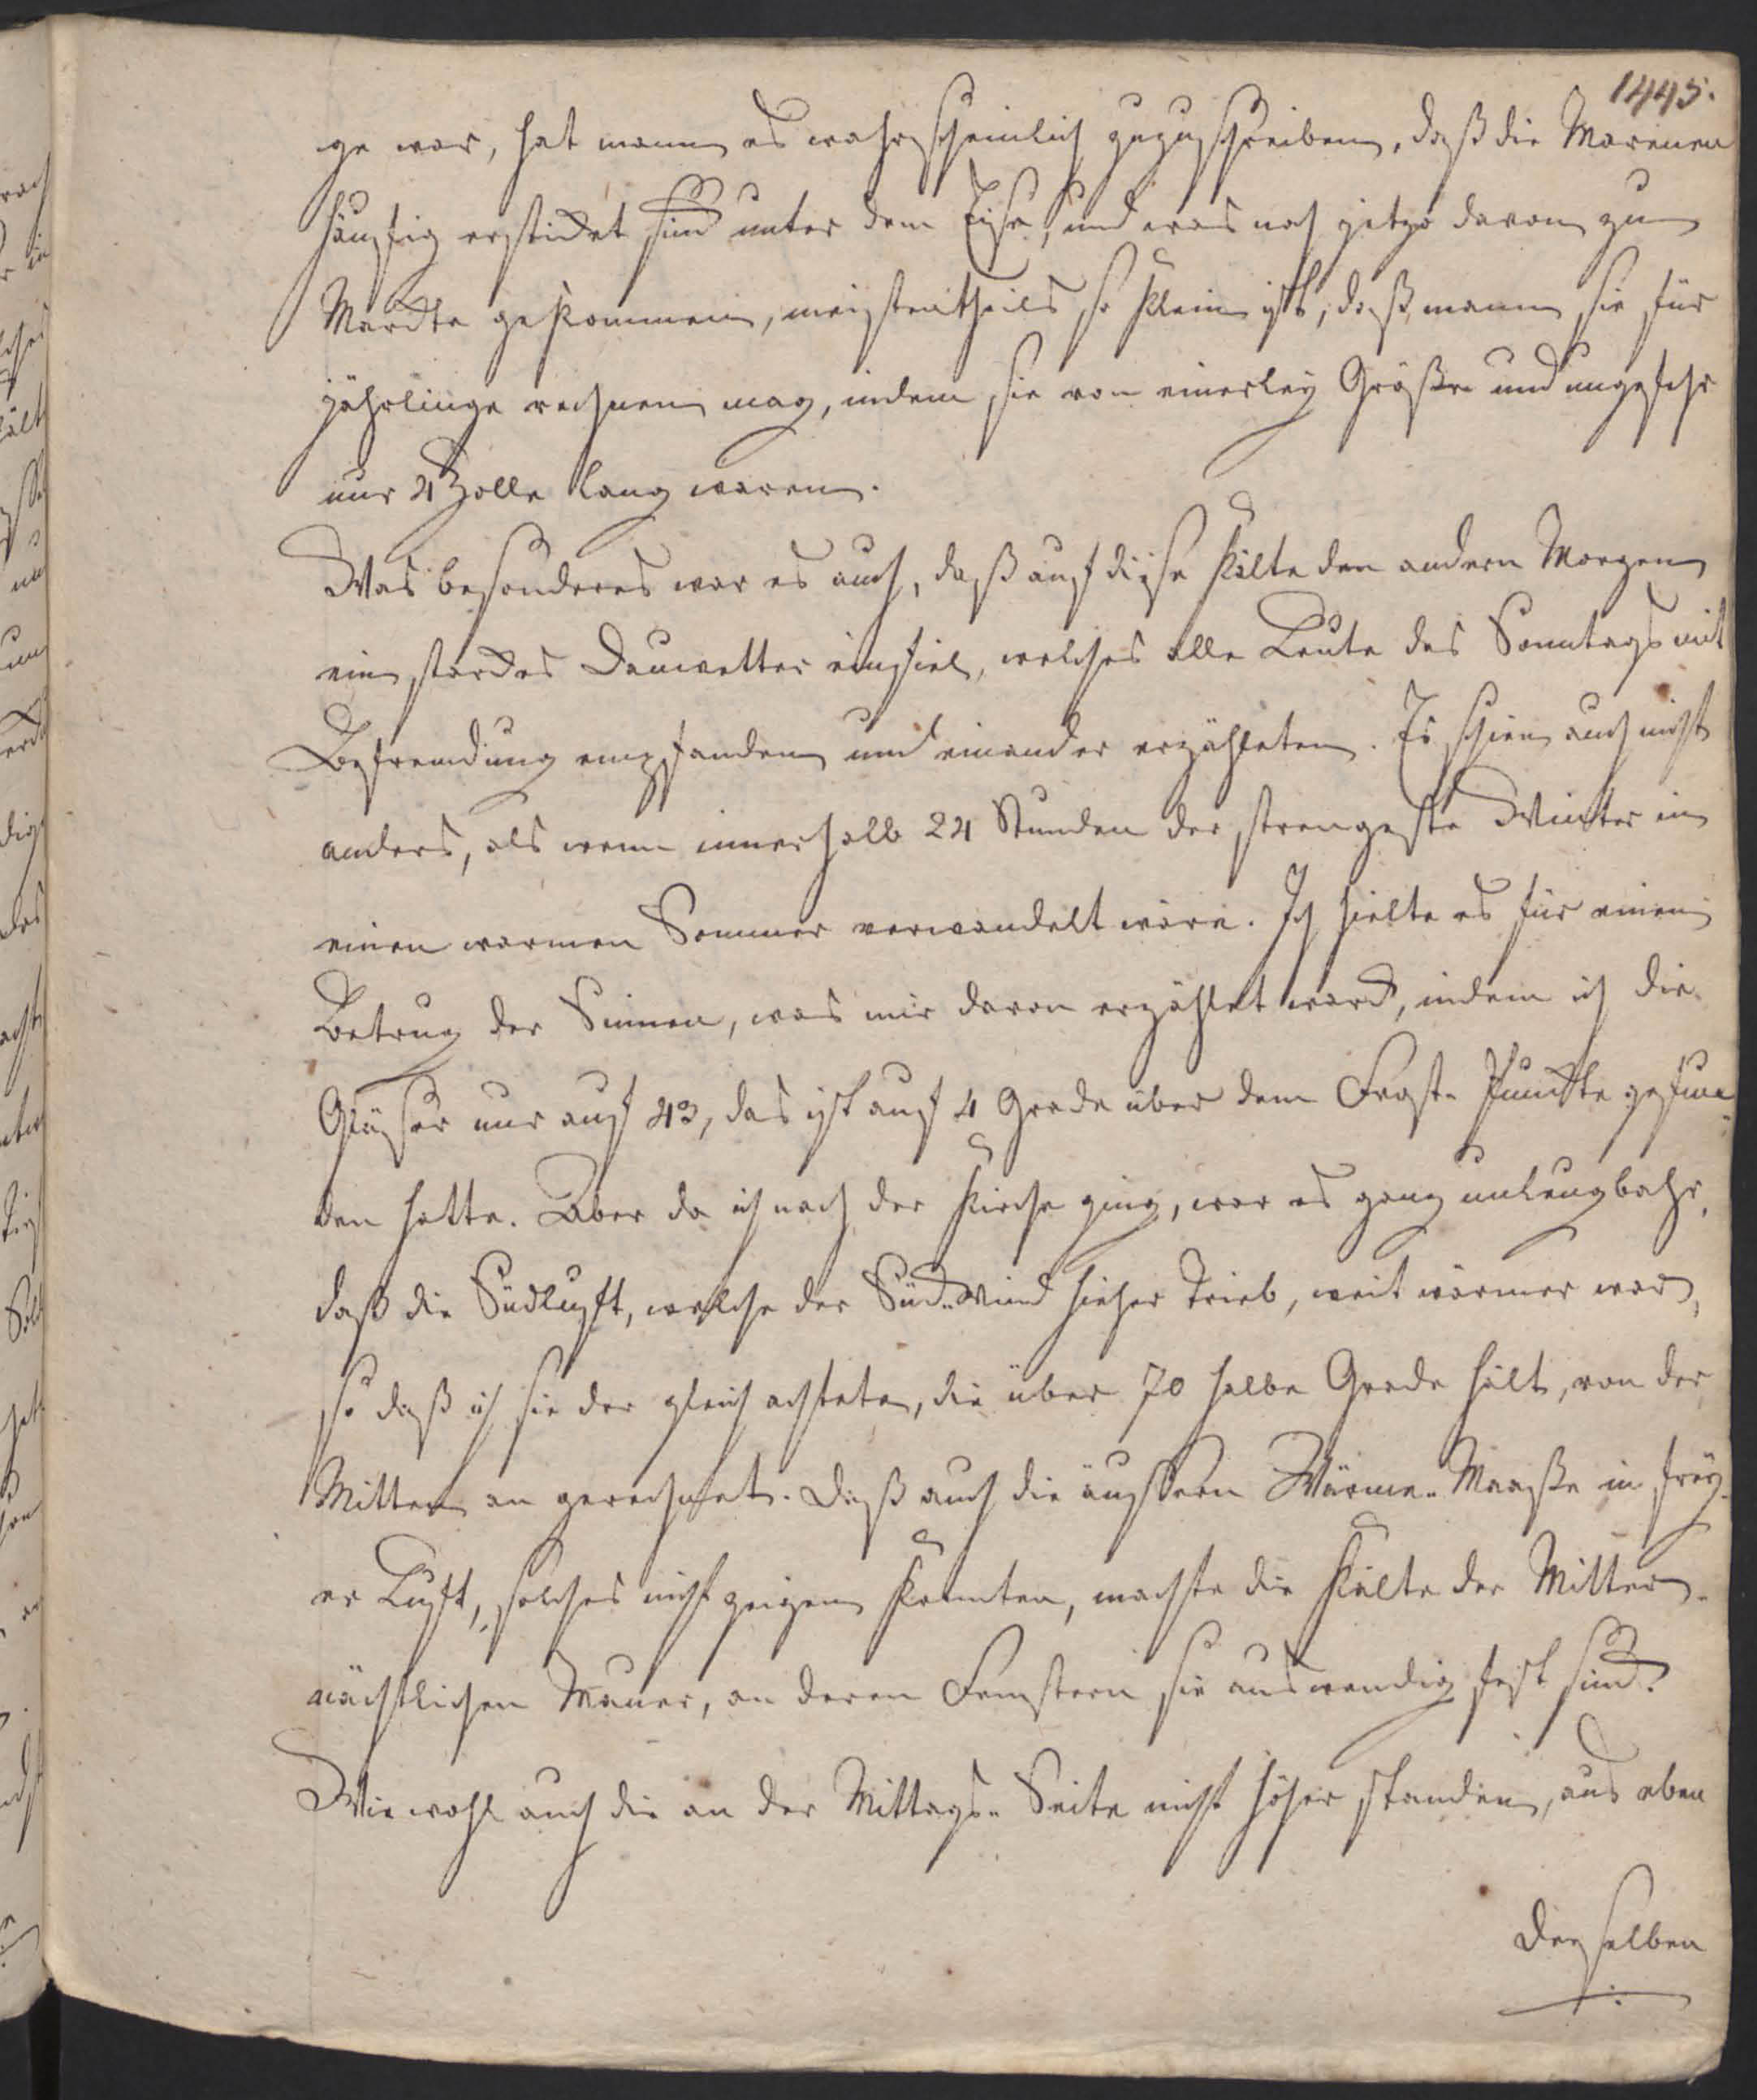 1445.
ge war, hat mann es wahrscheinlich zuzuschreiben, daß die Marenen
häuffig erstickt sind unter dem Eise, und was noch jetzo davon zu
Marckte gekommen, meistentheils so klein ist, daß mann sie für
jährlinge rechnen mag, indem sie von einerley Größe und ungefehr
nur 4 Zolle lang waren.
Was besonderes war es auch, daß auf diese Kälte den andern Morgen
ein starckes Dauwetter einfiel, welches alle Leute des Sonntags mit
Befremdung empfanden und einander erzähleten. Es schien auch nicht
anders, als wenn innerhalb 24 Stunden der strengeste Winter in
einen warmen Sommer verwandelt wäre. Ich hielte es für einen
Betrug der Sinnen, was mir davon erzählet ward, indem ich die
Gläser nur auf 43, das ist auf 4 Grade über dem Frost-Punckte gefun-
den hatte. Aber da ich nach der Kirche ging, war es gantz unleugbahr,
daß die Südluft, welche der Süd-Wind hieher trieb, weit wärmer war,
so daß ich sie der gleich achtete, die über 70 halbe Grade hält, von der
Mitten an gerechnet. Daß auch die äussern Wärme-Maaße in frey-
er Luft, solches nicht zeigen konnten, machte die Kälte der Mitter-
nächtlichen Mauer, an deren Fenstern sie auswendig fest sind.
Wiewohl auch die an der Mittags-Seite nicht höher standen, aus eben
derselben